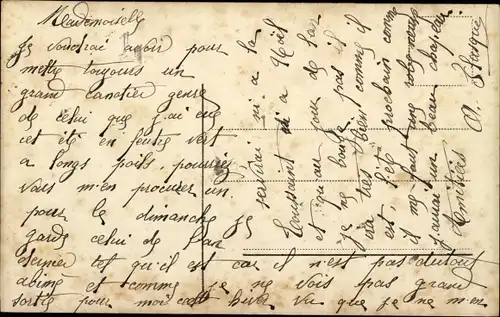 Mademoiselle
Je voudrai avoir pour
mettre toujours un
grand canotier genre
de celui que j'ai eue
cet été en feutre vert
a longs poils, pourriez
vous m'en procurer un
pour le dimanche
garde celui de l'an
dernier tel qu'il est car il n'est pas du tout
abimé et comme je ne vois pas grand
sortie pour moi cet hiver vu que je ne m'en
servirai ni a la
Toussaint ni a Noël
et qu'au jour de l'an
je ne bouge pas il
ira très bien comme il
est l'été prochain comme
il me faut une robe neuve
j'aurai un beau chapeau
Amitiés